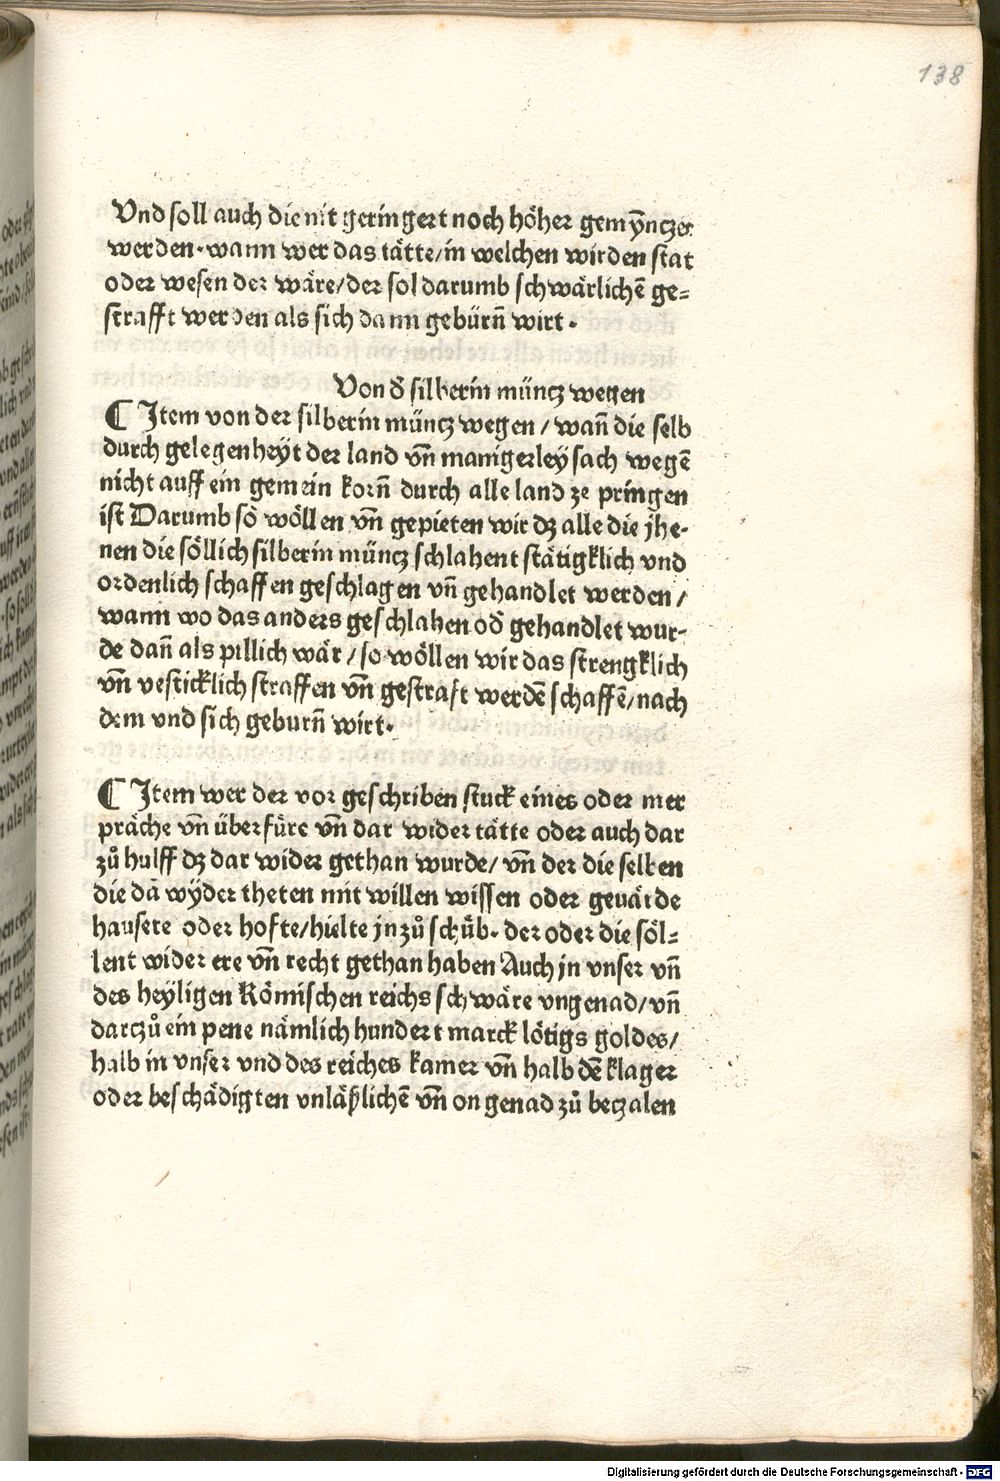 138
Vnd soll auch die nit geringert noch höher gemynczet
werden · wann wer das tätte / in welchen wirden stat
oder wesen der wäre / der sol darumb schwärlichē ge=
strafft werden als sich dann gebürn̄ wirt ·
Von d̄ silberin müncz wegen
¶ Item von der silberin müncz wegen / wan̄ die selb
durch gelegenheyt der land vn̄ manigerley sach wegē
nicht auff ein gemein korn̄ durch alle land ze pringen
ist Darumb so wöllen vn̄ gepieten wir dz alle die jhe-
nen die söllich silberin müncz schlahent stätigklich vnd
ordenlich schaffen geschlagen vn̄ gehandlet werden /
wann wo das anders geschlahen od̄ gehandlet wur-
de dan̄ als pillich wär / so wöllen wir das strengklich
vn̄ vesticklich straffen vn̄ gestraft werdē schaffē / nach
dem vnd sich geburn̄ wirt ·
¶ Item wer der vor geschriben stuck eines oder mer
präche vn̄ überfüre vn̄ dar wider tätte oder auch dar
zů hulff dz dar wider gethan wurde / vn̄ der die selben
die dā wyder theten mit willen wissen oder geuärde
hausete oder hofte / hielte jn zů schüb · der oder die söl=
lent wider ere vn̄ recht gethan haben Auch jn vnser vn̄
des heyligen Römischen reichs schwäre vngenad / vn̄
darczů ein pene nämlich hundert marck lötigs goldes /
halb in vnser vnd des reiches kamer vn̄ halb dē klager
oder beschädigten vnläßlichē vn̄ on genad zů beczalen
Digitalisierung gefördert durch die Deutsche Forschungsgemeinschaft - DFG